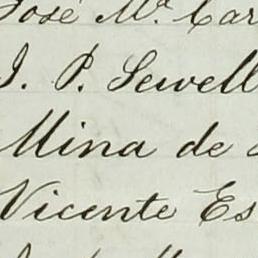 José Mª Car
J. P. Sewell
Mina de
Vicente Es